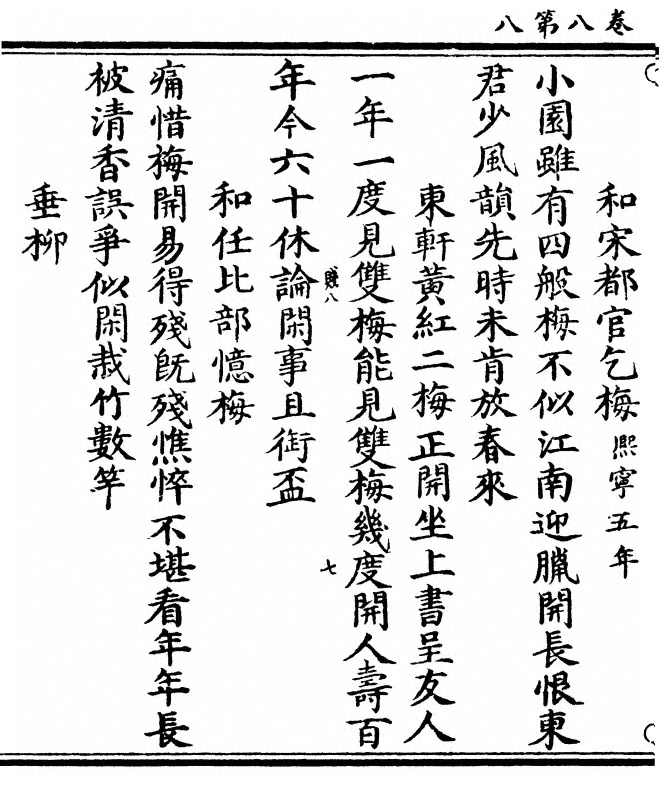 卷八第八
和宋都官乞梅熙寧五年
小園雖有四般梅不似江南迎臘開長恨東
君少風韻先時未肯放春來
東軒黃紅二梅正開坐上書呈友人
一年一度見雙梅能見雙梅幾度開人壽百
賤八
七
年今六十休論閑事且銜盃
和任比部憶梅
痛惜梅開易得殘旣殘憔悴不堪看年年長
被清香誤爭似閑栽竹數竿
垂柳